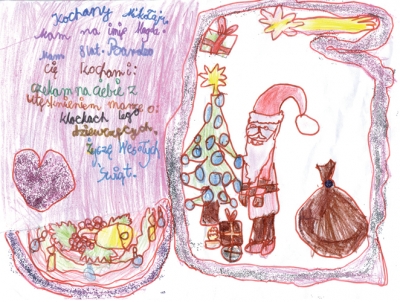 Kochany Mikołaju.
Mam na imię Magda.
Mam 8 lat. Bardzo
Cię kocham i
czekam na ciebie z
utęsknieniem marzę o:
klockach lego
dziewczęcych.
Życzę Wesołych
Świąt.